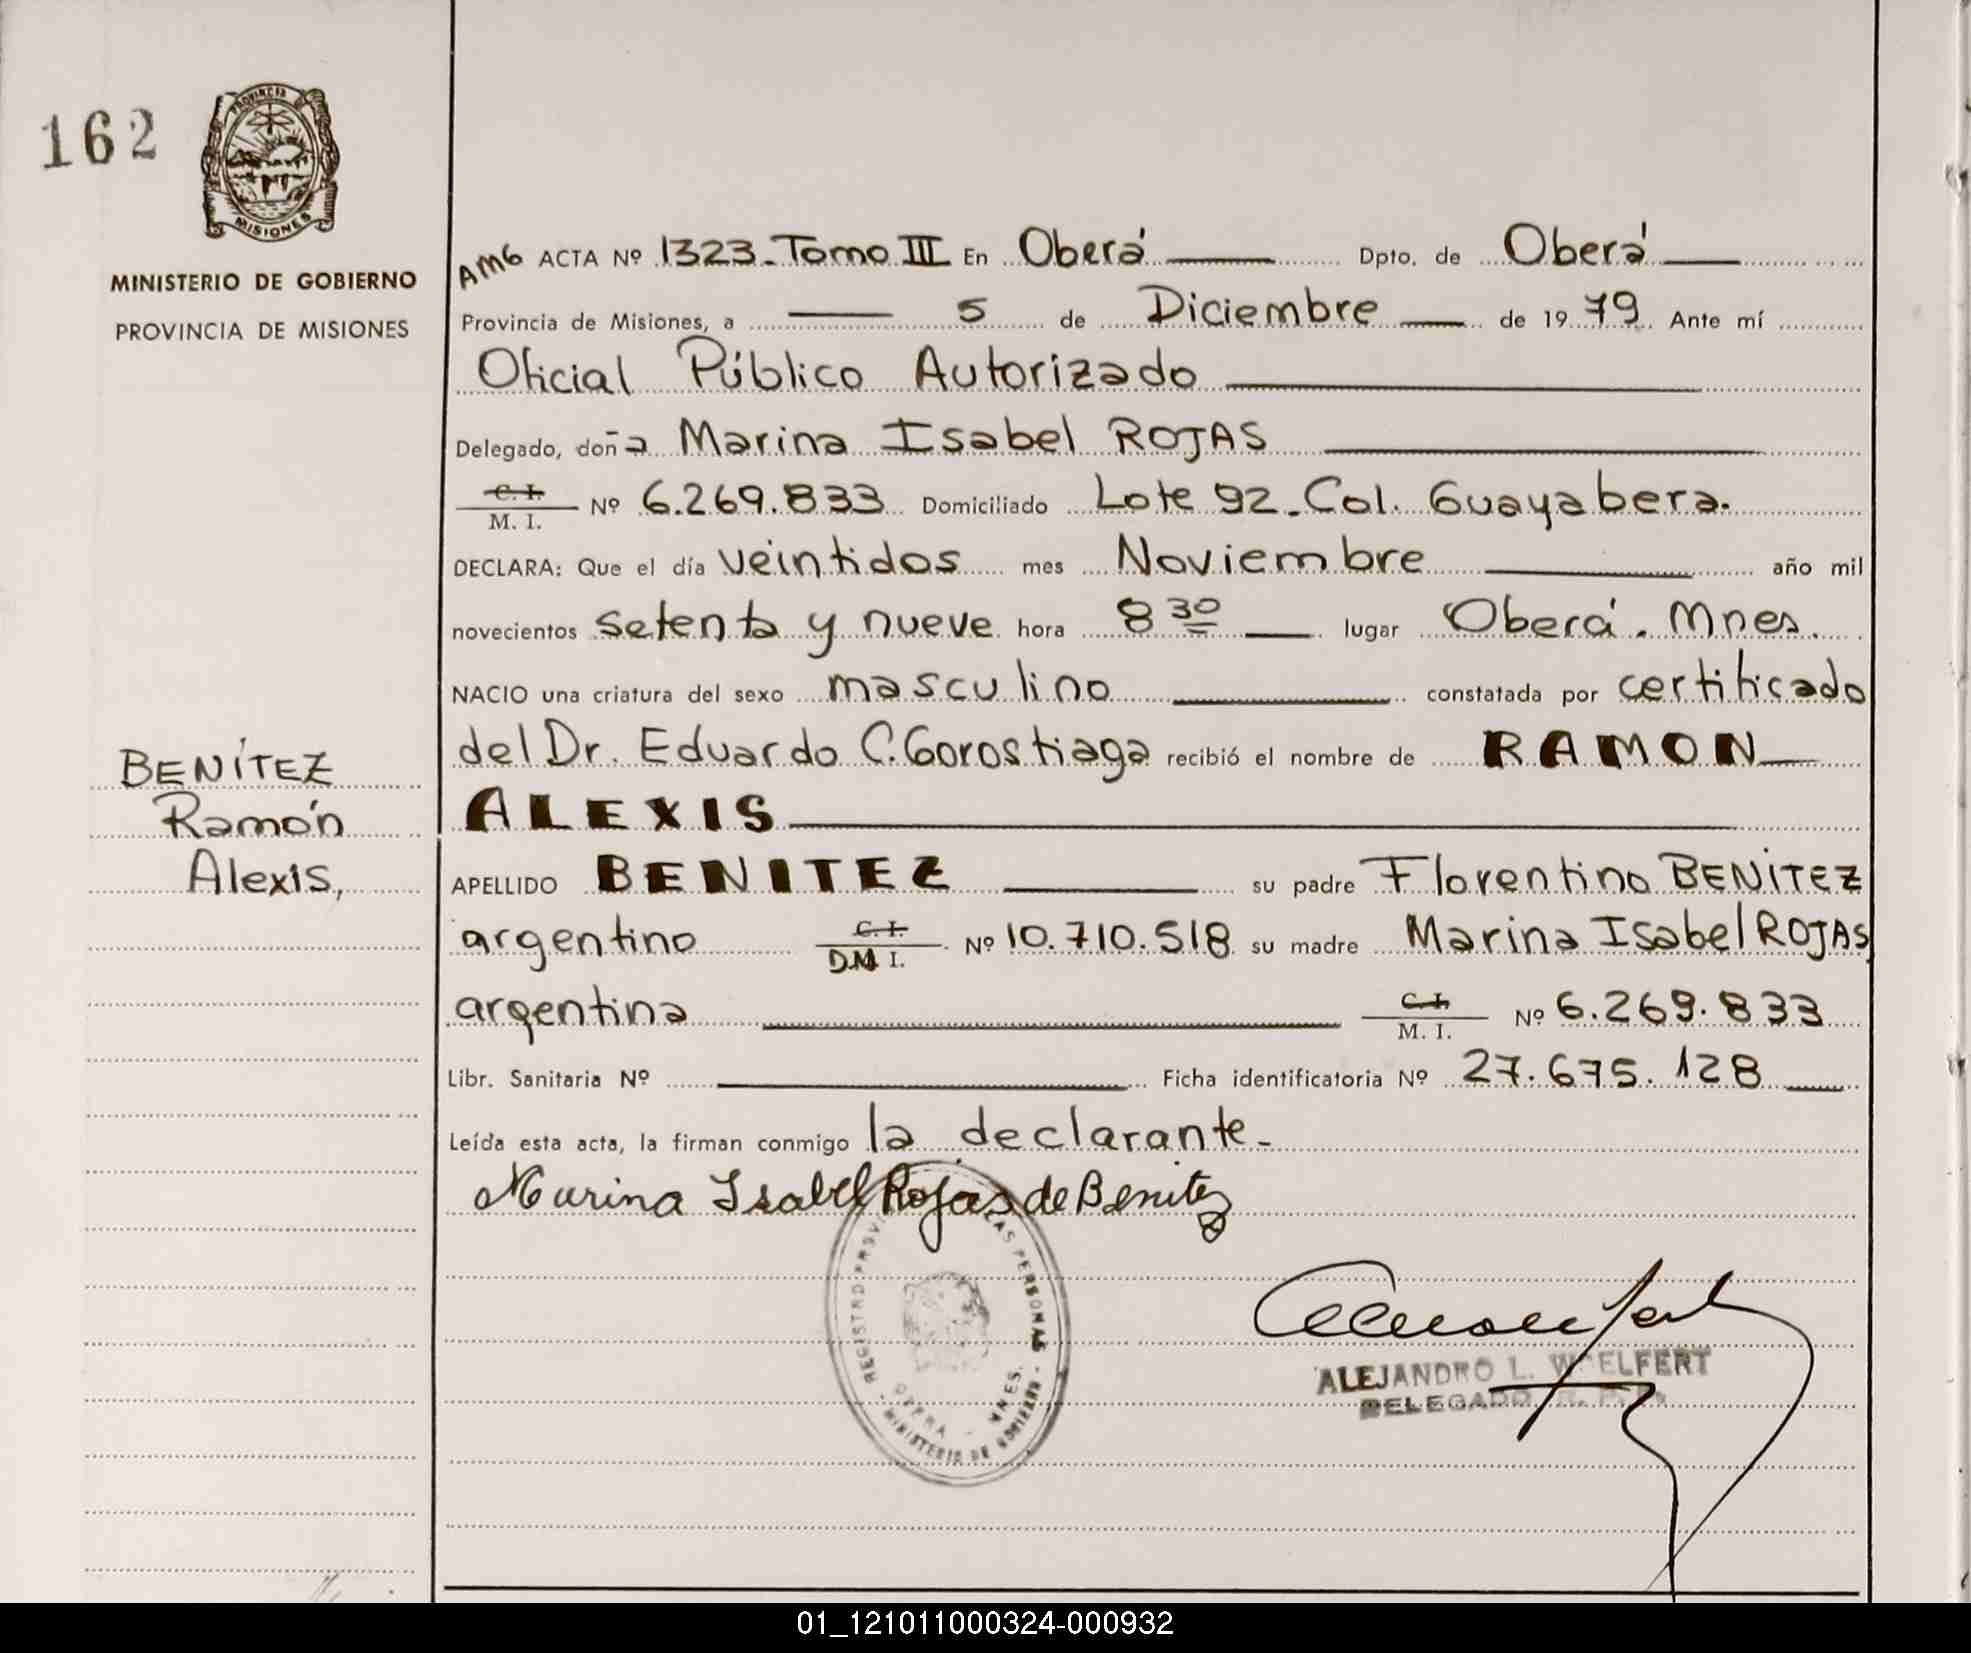 162
PROVINCIA
MISIONES
MINISTERIO DE GOBIERNO
PROVINCIA DE MISIONES
AMG ACTA Nº 1323-Tomo III En Oberá Dpto. de Oberá
Provincia de Misiones, a 5 de Diciembre de 1979 Ante mí
Oficial Público Autorizado
Delegado, doña Marina Isabel ROJAS
C. I.
M. I. Nº 6.269.833 Domiciliado Lote 92-Col. Guayabera.
DECLARA: Que el día veintidos mes Noviembre año mil
novecientos setenta y nueve hora 8 30 lugar Oberá. Mnes.
NACIO una criatura del sexo masculino constatada por certificado
del Dr. Eduardo C. Gorostiaga recibió el nombre de RAMON
ALEXIS
BENÍTEZ
Ramón
Alexis,
APELLIDO BENITEZ su padre Florentino BENÍTEZ
argentino C. I. DM I. Nº 10.710.518 su madre Marina Isabel ROJAS
argentina C. I. M. I. Nº 6.269.833
Libr. Sanitaria Nº Ficha identificatoria Nº 27.675.128
Leída esta acta, la firman conmigo la declarante-
Marina Isabel Rojas de Benitez
REGISTRO PERSONAS
OBERA - MNES.
MINISTERIO DE GOBIERNO
ALEJANDRO L. WOELFERT
DELEGADO
01_121011000324-000932